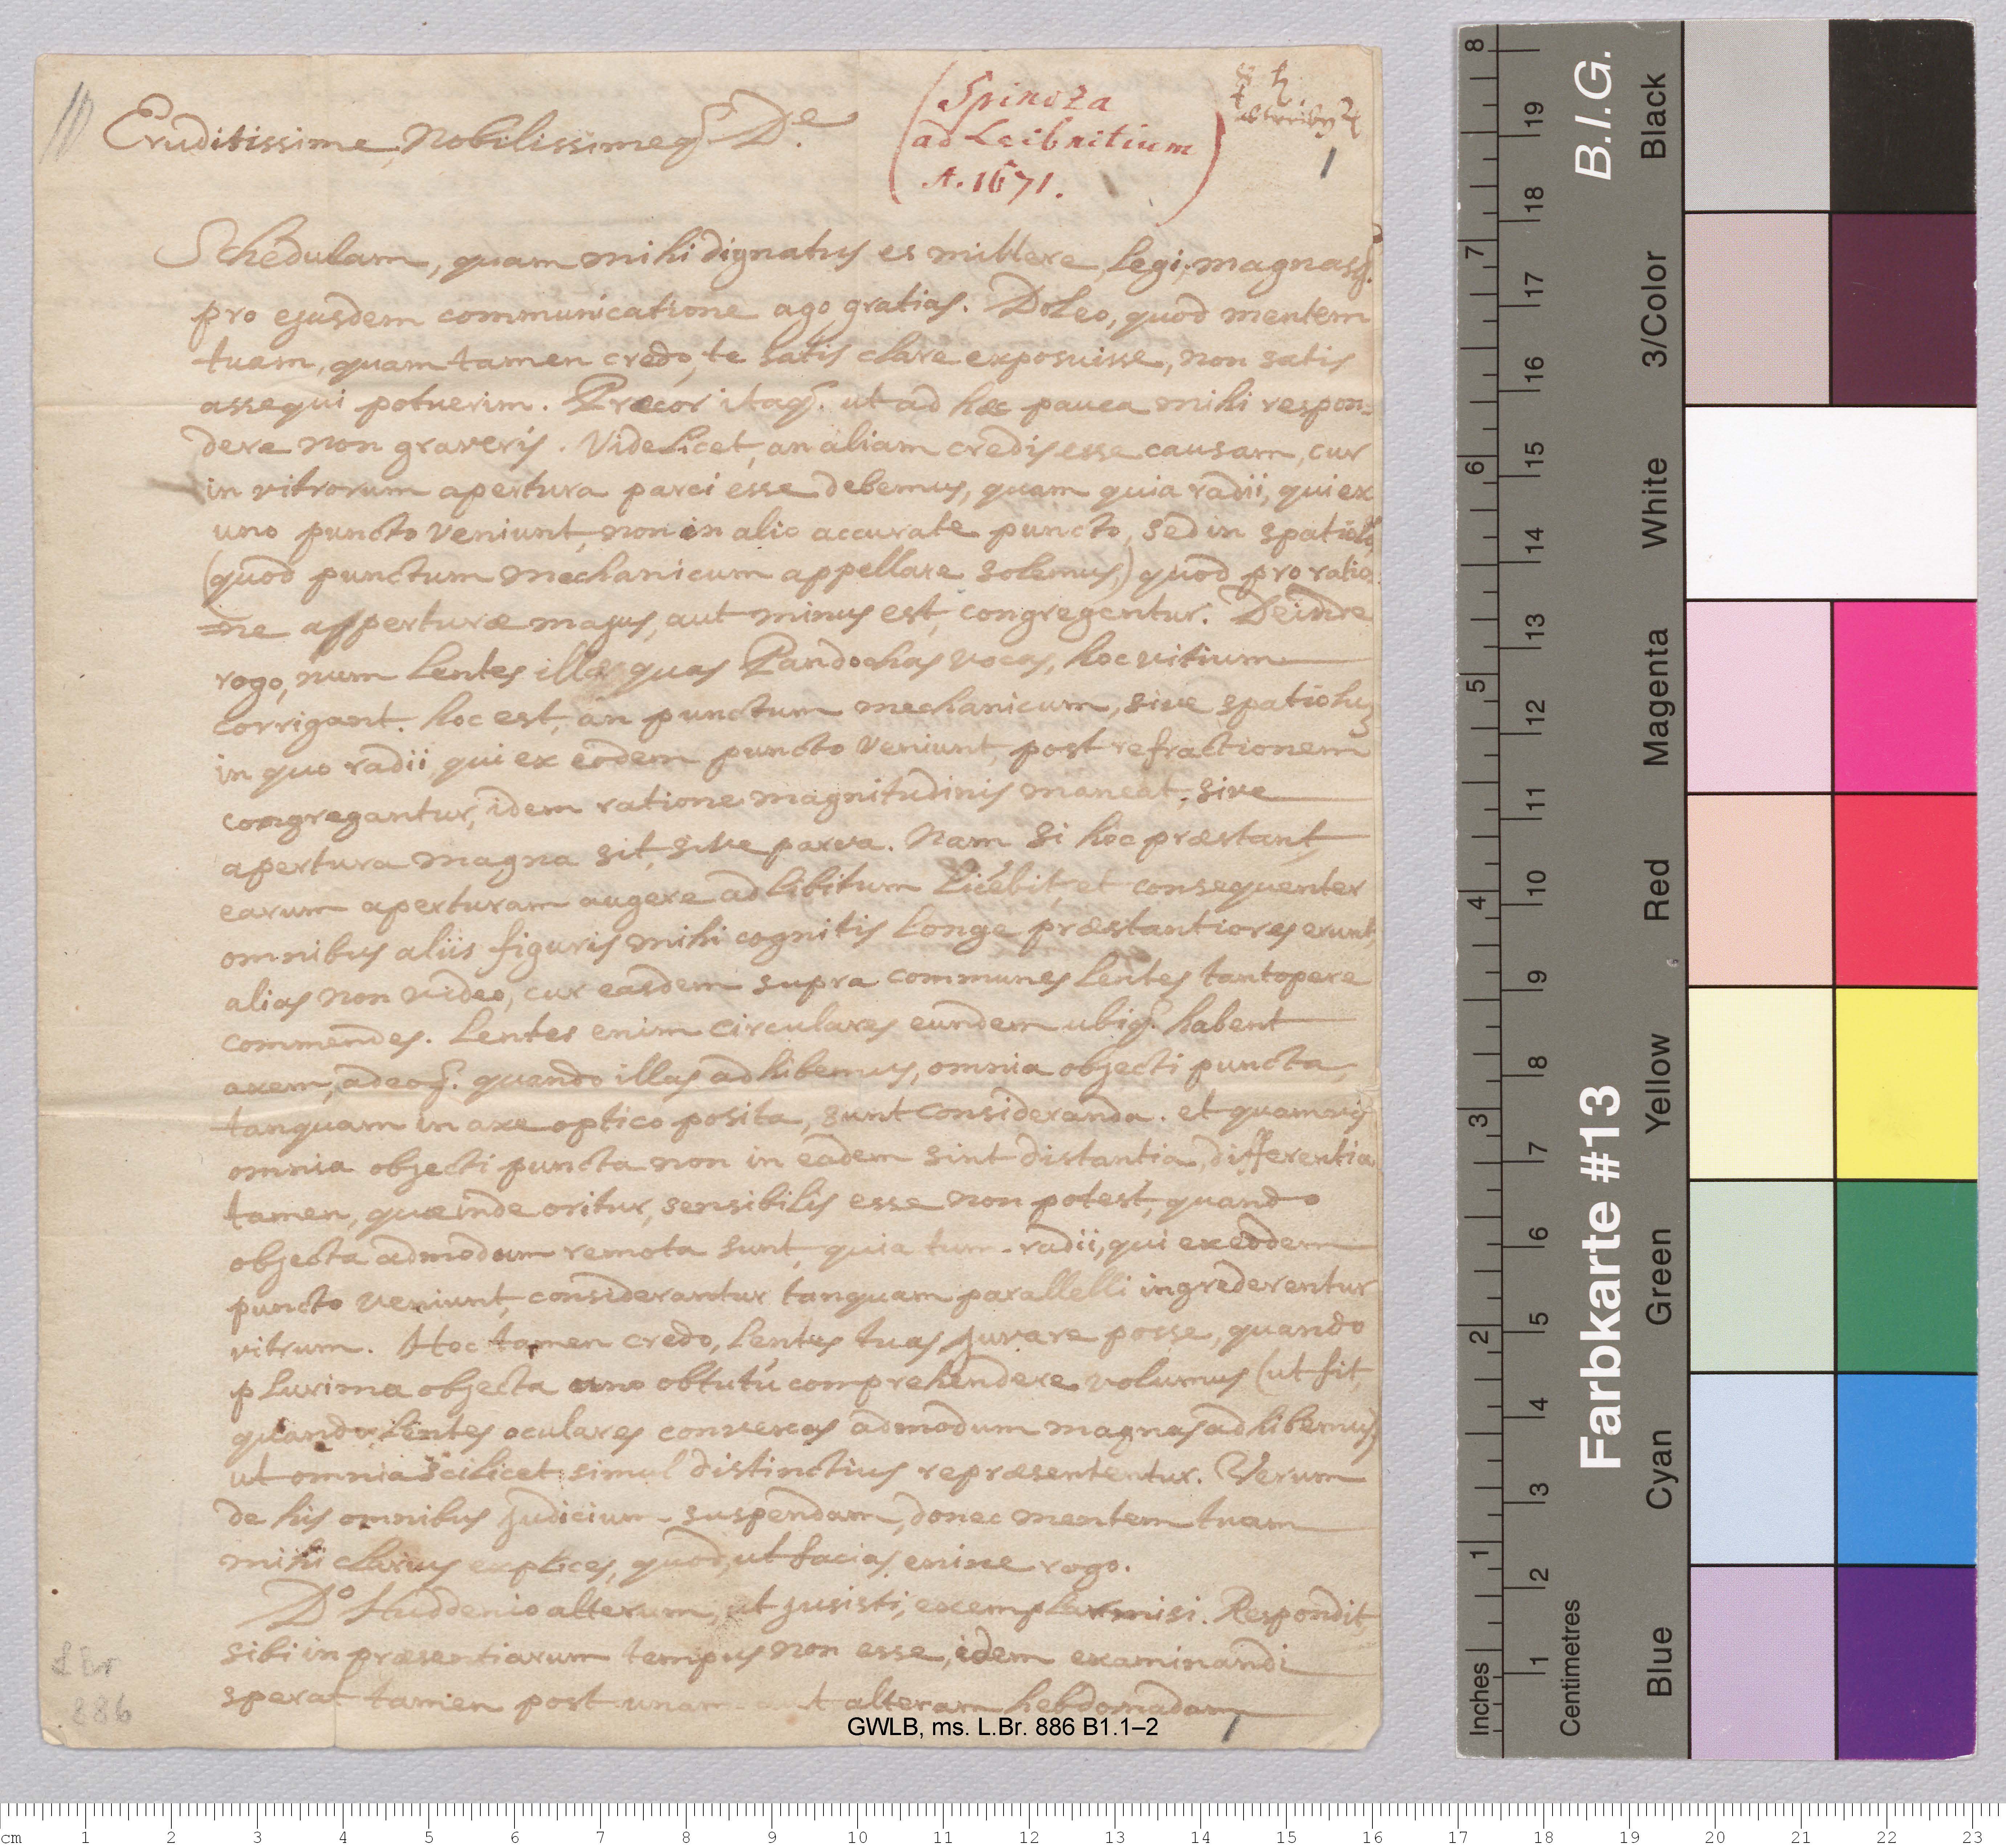 Eruditissime, Nobilissimeq; De.
(Spinoza
ad Leibnitium
A. 1671.)
1
Schedulam, quam mihi dignatus es mittere, legi, magnasq;
pro ejusdem communicatione ago gratias. Doleo, quod mentem
tuam, quam tamen credo, te satis clare exposuisse, non satis
assequi potuerim. Precor itaq;. ut ad hæc pauca mihi respon=
dere non graveris. Videlicet, an aliam credis esse causam, cur
in vitrorum apertura parci esse debemus, quam quia radii, qui ex
uno puncto veniunt, non in alio accurate puncto, sed in spatiolo,
(quod punctum mechanicum appellare solemus,) quod pro ratio
=ne apperturæ majus, aut minus est, congregentur. Deinde
rogo, num Lentes illæ quas Pandochas vocas, hoc vitium
corrigant. hoc est, an punctum mechanicum, sive spatiolu
in quo radii, qui ex eodem puncto veniunt, post refractionem
congregantur, idem ratione magnitudinis maneat, sive
apertura magna sit, sive parva. Nam si hoc præstant,
earum aperturam augere ad libitum licébit, et consequenter
omnibus aliis figuris mihi cognitis longe præstantiores erunt,
alias non video, cur easdem supra communes Lentes tantopere
commendes. Lentes enim circulares eundem ubiq;. habent
axem, adeoq;. quando illas adhibemus, omnia objecti puncta,
tanquam in axe optico posita, sunt consideranda. et quamvis
omnia objecti puncta non in eadem sint distantia, differentia
tamen, quæ inde oritur, sensibilis esse non potest, quando
objecta admodum remota sunt, quia tum radii, qui ex eodem
puncto veniunt, considerantur tanquam parallelli ingrederentur
vitrum. Hoc tamen credo, Lentes tuas juvare posse, quando
plurima objecta uno obtutú comprehendere volumus (ut fit,
quando Lentes oculares convexas admodum magnas adhibemus)
ut omnia scilicet simul distinctius repræsententur. Verum
de his omnibus judicium suspendam, donec mentem tuam
mihi clarius explices, quod, ut facias, enixe rogo.
Do Huddenio alterum, ut jusisti, exemplar misi. Respondit,
sibi in præsentiarum tempus non esse, idem examinandi
sperat tamen post unam aut alteram hebdomadam
L Br
886
GWLB, ms. L.Br. 886 B1.1–2
1
Inches 1 2 3 4 5 6 7 8
Centimetres 1 2 3 4 5 6 7 8 9 10 11 12 13 14 15 16 17 18 19
Farbkarte #13 B.I.G.
Blue Cyan Green Yellow Red Magenta White 3/Color Black
cm 1 2 3 4 5 6 7 8 9 10 11 12 13 14 15 16 17 18 19 20 21 22 23